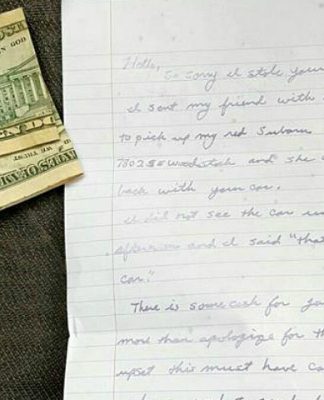 GOD
WE TRUST
Hello,
So sorry I stole your
I sent my friend with
to pick up my red Subaru
SE woodstock and she
back with your car.
I did not see the car un
afternoon and I said "that
car."
There is some cash for ga
more than apologize for th
upset this must have ca